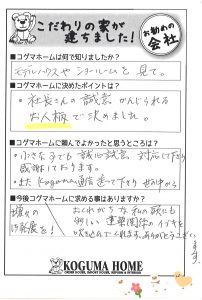 こだわりの家が
建ちました!
お勧めの
会社
■コグマホームは何で知りましたか?
モデルハウスやショールームを見て。
■コグマホームに決めたポイントは?
・社長さんの誠意かんじられる
お人柄で決めました。
■コグマホームに頼んでよかったと思うところは?
・小さな子でも誠心誠意 対応して下さり
感謝しております。
・また Koguma通信 送って下さり
■今後コグマホームに求める事はありますか?
おくれがちな私の頭にも
新しい建築関係のイブキを
吹き込んでくれます。ありがとうござい
ます。
KOGUMA HOME